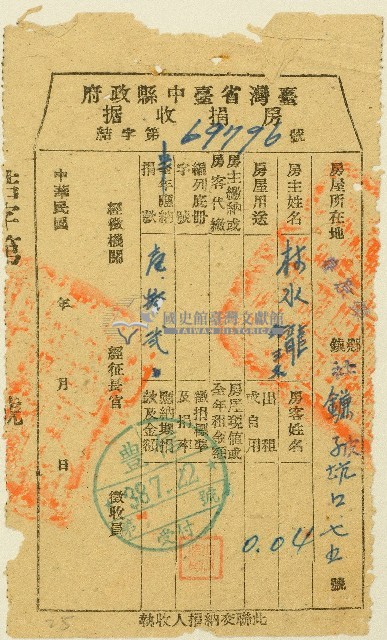 臺灣省臺中縣政府
房捐收据
結字第69796號
房屋所在地
鄉鎮
坑口七五號
房主姓名
林水龍
房客姓名
房屋用途
出租或自用
0.04
房主繳納或房客代繳
房屋現值或全年租金額
編列底冊字號
徵捐標準及捐率
半年應納捐款
應納期捐款及金額
經徵機關
經征長官
徵收員
中華民國 年 月 日
豐
38.7.22
第 號
受付
國史館臺灣文獻館
TAIWAN HISTORICA
此聯交納捐人收執
25